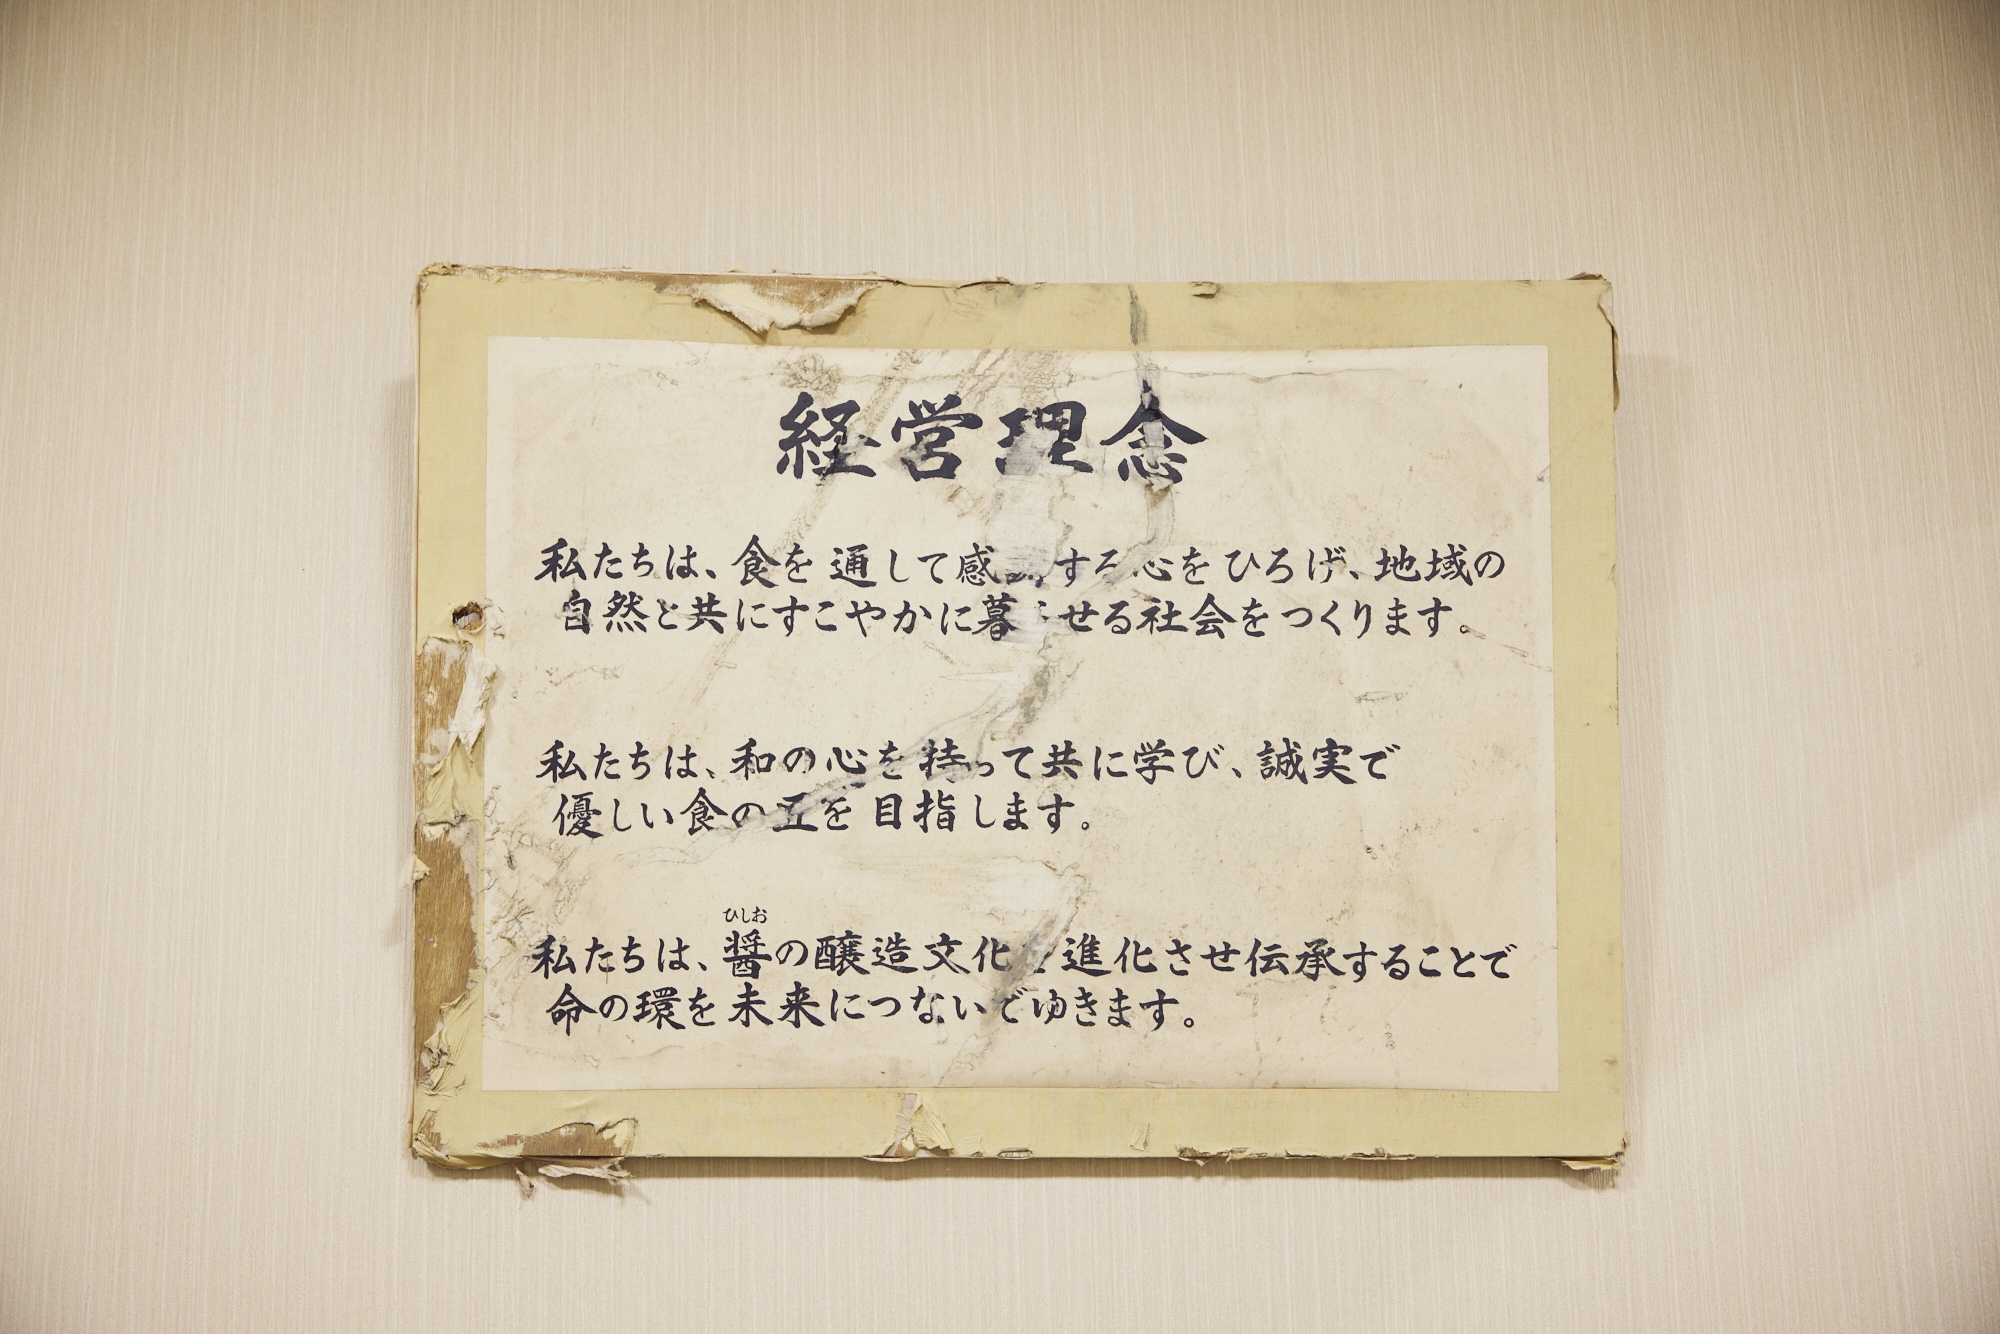 経営理念
私たちは、食を通して感する心をひろげ、地域の
自然と共にすこやかに暮らせる社会をつくります。
私たちは、和の心を持って共に学び、誠実で
優しい食の匠を目指します。
ひしお
私たちは、醤の醸造文化を進化させ伝承することで
命の環を未来につないでゆきます。